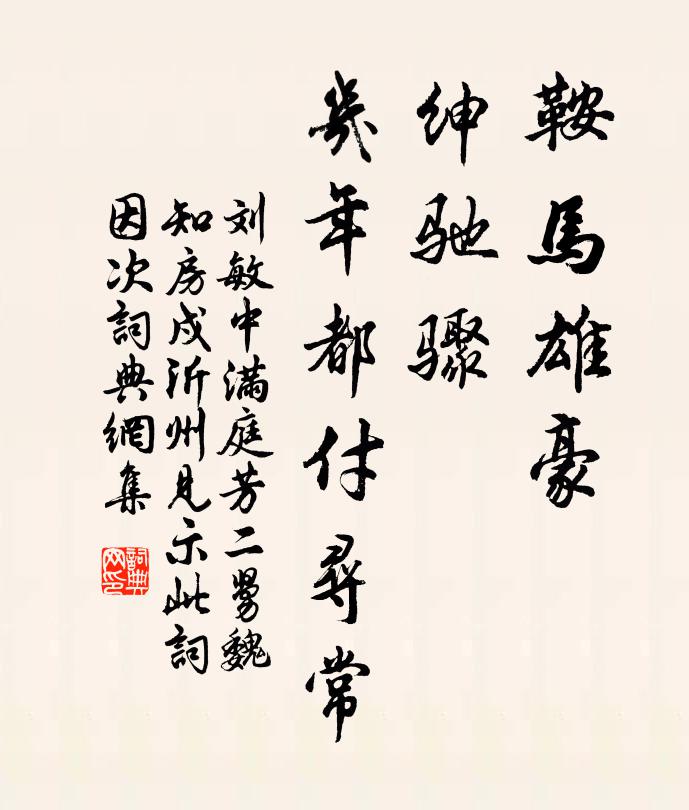 鞍馬雄豪
绅驰骤
幾年都付尋常
刘敏中滿庭芳二舅魏
知房戍沂州見示此詞
因次詞典網集
詞典网印